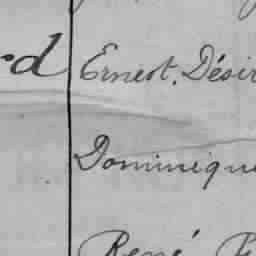 rd Ernest, Désir
Dominique
René